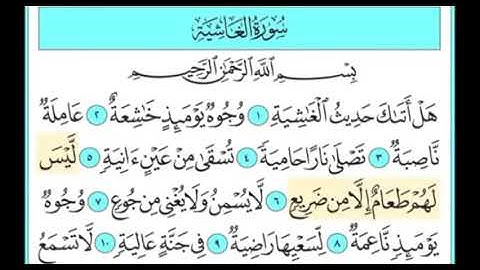 سُورَةُ الغَاشِيَةِ
بِسْمِ اللَّهِ الرَّحْمَٰنِ الرَّحِيمِ
هَلْ أَتَىٰكَ حَدِيثُ الْغَٰشِيَةِ ١ وُجُوهٌ يَوْمَئِذٍ خَٰشِعَةٌ ٢ عَامِلَةٌ
نَّاصِبَةٌ ٣ تَصْلَىٰ نَارًا حَامِيَةً ٤ تُسْقَىٰ مِنْ عَيْنٍ ءَانِيَةٍ ٥ لَّيْسَ
لَهُمْ طَعَامٌ إِلَّا مِن ضَرِيعٍ ٦ لَّا يُسْمِنُ وَلَا يُغْنِي مِن جُوعٍ ٧ وُجُوهٌ
يَوْمَئِذٍ نَّاعِمَةٌ ٨ لِّسَعْيِهَا رَاضِيَةٌ ٩ فِي جَنَّةٍ عَالِيَةٍ ١٠ لَّا تَسْمَعُ